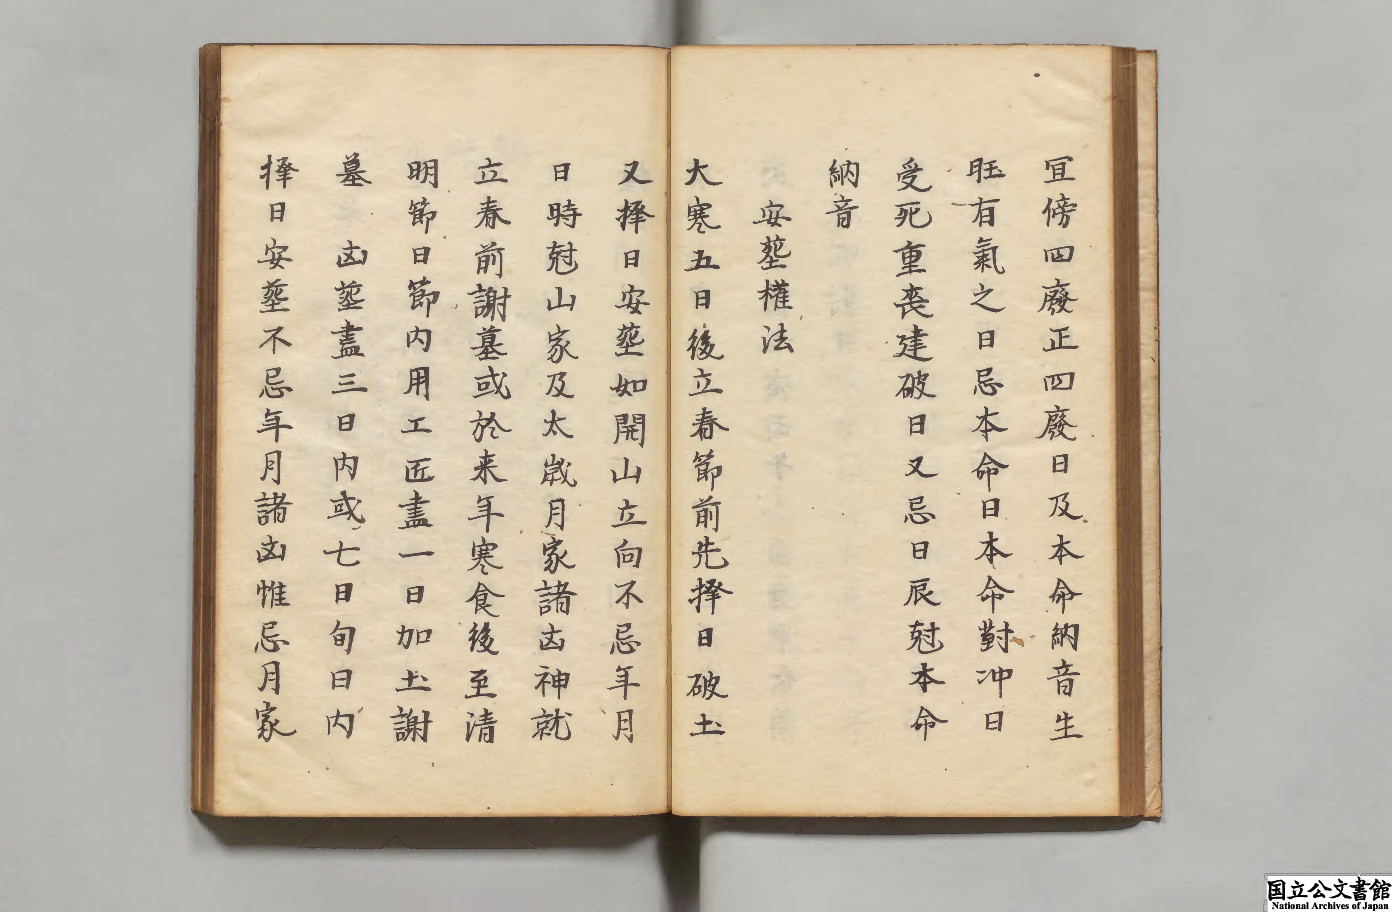 宜傍四廢正四廢日及本命納音生
旺有氣之日忌本命日本命對冲日
受死重喪建破日又忌日辰尅本命
納音
安塟權法
大寒五日後立春節前先擇日破土
又擇日安塟如開山立向不忌年月
日時尅山家及太歲月家諸凶神就
立春前謝墓或於来年寒食後至清
明節日節内用工匠盡一日加土謝
墓 凶塟盡三日内或七日旬日内
擇日安塟不忌年月諸凶惟忌月家
国立公文書館
National Archives of Japan